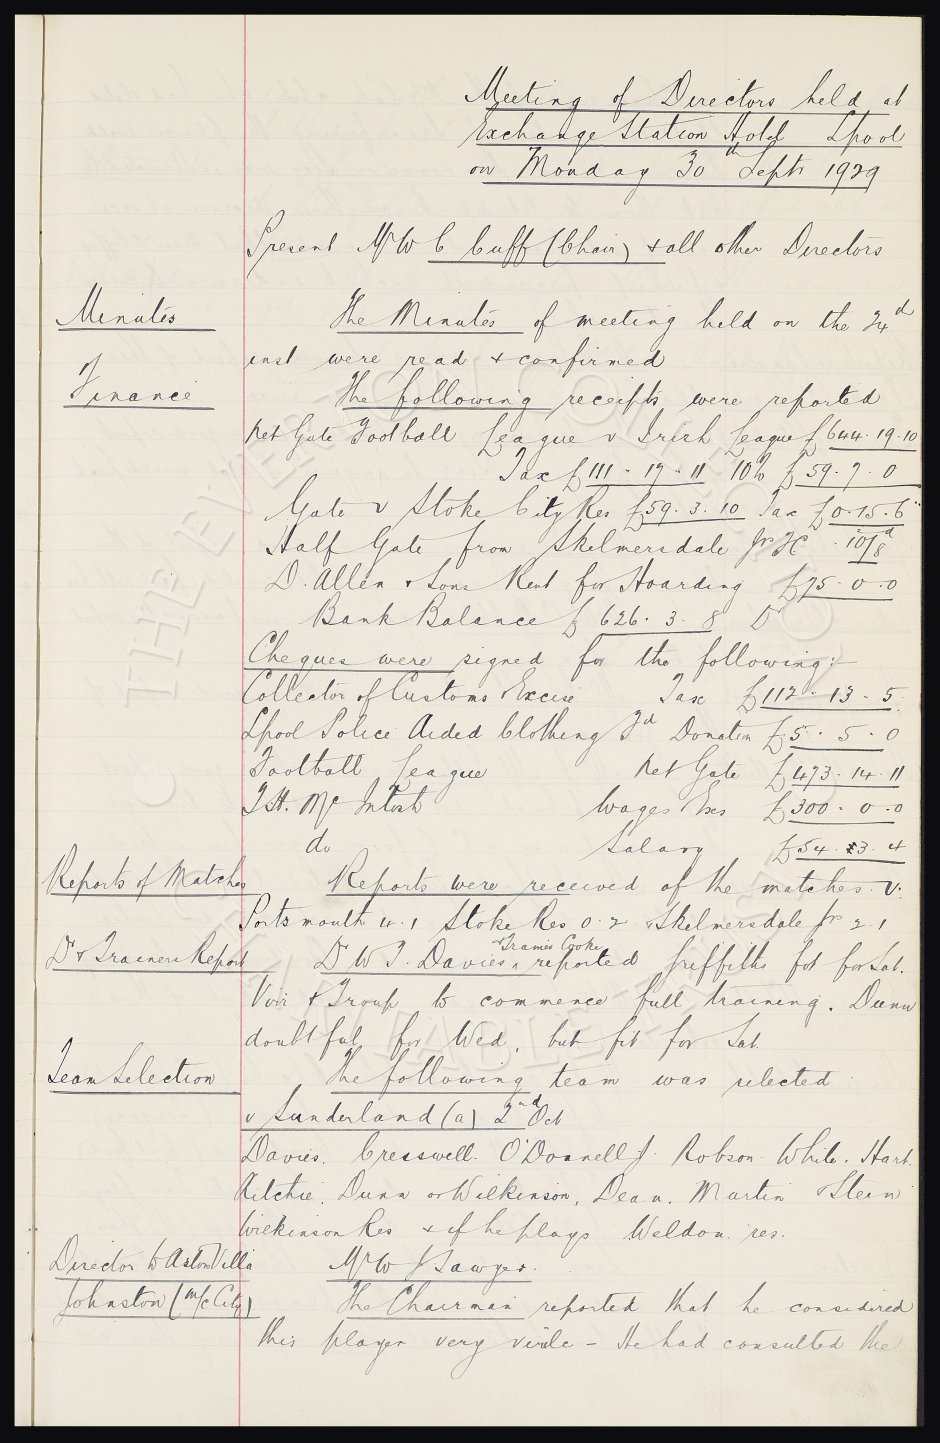 Meeting of Directors held at
Exchange Station Hotel Lpool
on Monday 30th Sept 1929
Present Mr W C Cuff (Chair) & all other Directors
Minutes The Minutes of meeting held on the 24th
inst were read & confirmed
Finance The following receipts were reported
Net Gate Football League v Irish League £644.19.10
Tax £111.19.11 10% £59.7.0
Gate v Stoke City Res £59.3.10 Tax £0.15.6
Half Gate from Skelmersdale Jr FC 10/8d
D. Allen & Sons Rent for Hoarding £75.0.0
Bank Balance £626.3.8 Dr
Cheques were signed for the following:-
Collector of Customs & Excise Tax £112.13.5
Lpool Police Aided Clothing Fd Donation £5.5.0
Football League Net Gate £473.14.11
T. H. McIntosh Wages Exes £300.0.0
do Salary £54.3.4
Reports of Matches Reports were received of the matches v.
Portsmouth 4.1 Stoke Res 0.2 & Skelmersdale Jr 2.1
Dr & Trainers Report Dr W. J. Davies & Trainer Cooke reported Griffiths fit for Sat.
Weir & Troup to commence full training. Dunn
doubtful for Wed, but fit for Sat.
Team Selection The following team was selected
v Sunderland (a) 2nd Oct
Davies. Cresswell. O'Donnell J. Robson. White. Hart.
Ritchie. Dunn or Wilkinson, Dean. Martin & Stein
Wilkinson Res & if he plays Weldon res.
Director to Aston Villa Mr W J Sawyer.
Johnston (M/c City) The Chairman reported that he considered
this player very virile - He had consulted the
© THE EVERTON COLLECTION CHARITABLE TRUST